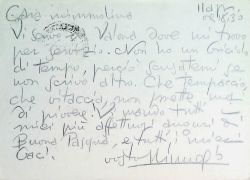 Vi scrivo da Valona dove mi trovo
per servizio. Non ho un briciolo
di tempo, perciò scusatemi se
non scrivo altro. Che tempaccio,
che vitaccia, non smette mai
di piovere. Vi mando tutti i
miei più affettuosi auguri di
Buona Pasqua, e tutti i miei
baci.